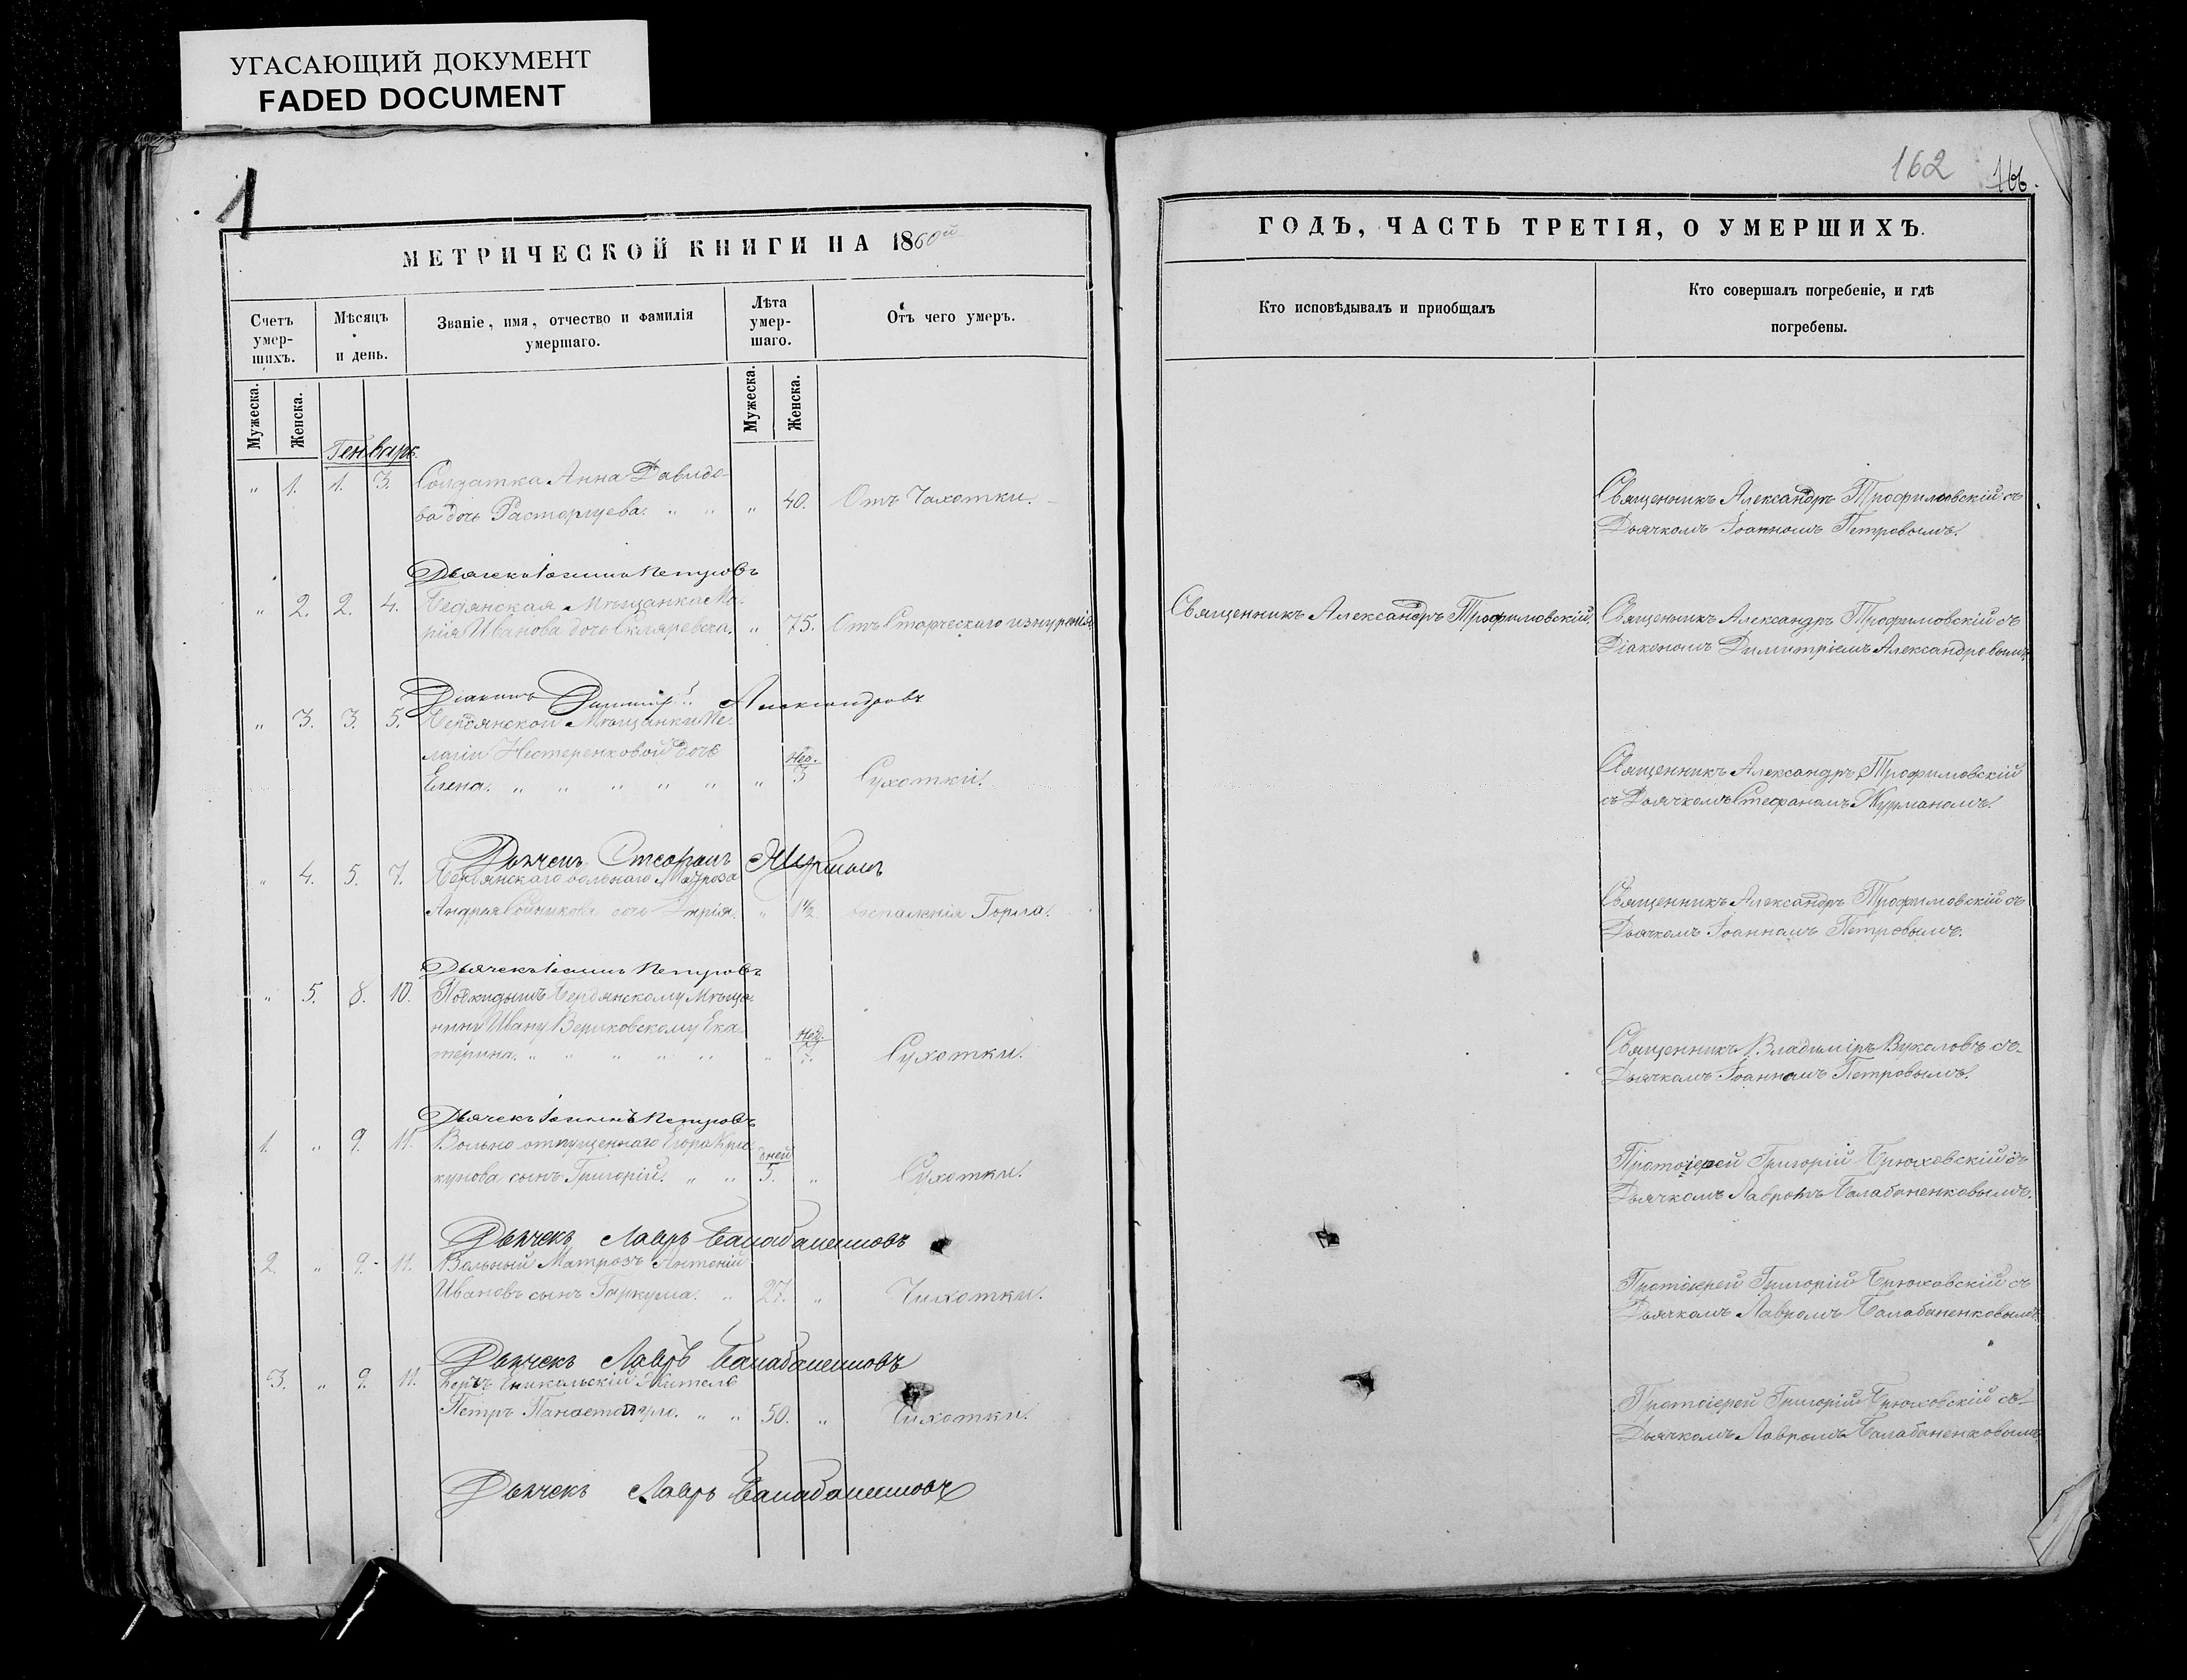 УГАСАЮЩИЙ ДОКУМЕНТ
FADED DOCUMENT
1
МЕТРИЧЕСКОЙ КНИГИ НА 1860й
Счетъ умер-шихъ.
Мѣсяцъ и день.
Званіе, имя, отчество и фамилія умершаго.
Лѣта умер-шаго.
Отъ чего умеръ.
Мужеска. Женска.
Мужеска. Женска.
Генварь.
" 1. 1. 3. Солдатка Анна Давидо-
ва дочь Расторгуева. " " " 40. Отъ Чахотки.
Дьячекъ Іоаннъ Петровъ
" 2. 2. 4. Бердянская Мѣщанка Ма-
рія Иванова дочь Скляревска. " 75. Отъ Старческаго изнуренія
Діаконъ Димитрій Александровъ
" 3. 3. 5. Бердянской Мѣщанки Пе-
лагіи Нестеренковой дочь
Елена. " " " " " " Нед. 3 Сухотки.
Дьячекъ Стефанъ Журманъ
" 4. 5. 7. Бердянскаго вольнаго Матроза
Андрея дочь Марія. " 1½ воспаленія Горла.
Дьячекъ Іоаннъ Петровъ
" 5. 8. 10. Подкидышъ Бердянскому Мѣща-
нину Ивану Вериковскому Ека-
терина. " " " " " " Нед. Сухотки.
Дьячекъ Іоаннъ Петровъ
1. " 9. 11. Вольно отпущеннаго Егора Кри-
кунова сынъ Григорій. " " дней 5. " Сухотки.
Дьячекъ Лавръ Балабаненковъ
2. " 9. 11. Вольный Матрозъ Антоній
Ивановъ сынъ Гаркуша. " 27. " Чихотки.
Дьячекъ Лавръ Балабаненковъ
3. " 9. 11. Керчь Еникольскій Житель
Петръ " " 50. " Чихотки.
Дьячекъ Лавръ Балабаненковъ
162 166.
ГОДЪ, ЧАСТЬ ТРЕТІЯ, О УМЕРШИХЪ.
Кто исповѣдывалъ и пріобщалъ
Кто совершалъ погребеніе, и гдѣ
погребены.
Священникъ Александръ Трофимовскій съ
Дьячкомъ Іоанномъ Петровымъ.
Священникъ Александръ Трофимовскій.
Священникъ Александръ Трофимовскій съ
Діакономъ Димитріемъ Александровымъ.
Священникъ Александръ Трофимовскій
съ Дьячкомъ Стефаномъ Журманомъ.
Священникъ Александръ Трофимовскій съ
Дьячкомъ Іоанномъ Петровымъ.
Священникъ Владиміръ Вуколовъ съ
Дьячкомъ Іоанномъ Петровымъ.
Протоіерей Григорій Брюховскій съ
Дьячкомъ Лавромъ Балабаненковымъ.
Протоіерей Григорій Брюховскій съ
Дьячкомъ Лавромъ Балабаненковымъ.
Протоіерей Григорій Брюховскій съ
Дьячкомъ Лавромъ Балабаненковымъ.